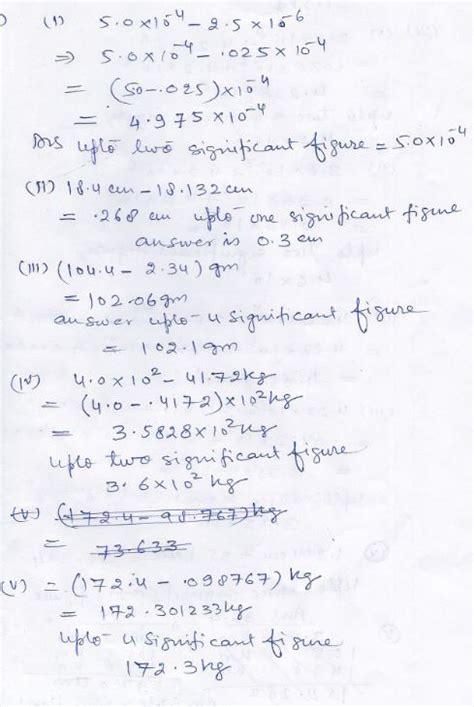 (I) 5.0×10⁻⁴ - 2.5×10⁻⁶
⇒ 5.0×10⁻⁴ - .025×10⁻⁴
= (50-.025)×10⁻⁴
= 4.975×10⁻⁴
Ans upto two significant figure = 5.0×10⁻⁴
(II) 18.4 cm - 18.132 cm
= .268 cm upto one significant figure
answer is 0.3 cm
(III) (104.4 - 2.34) gm
= 102.06gm
answer upto 4 significant figure
= 102.1gm
(IV) 4.0×10² - 41.72kg
= (4.0 - .4172)×10²kg
= 3.5828×10²kg
upto two significant figure
3.6×10² kg
(V) (172.4-98.767)kg
= 73.633
(V) = (172.4 - .098767) kg
= 172.301233kg
upto 4 significant figure
172.3kg